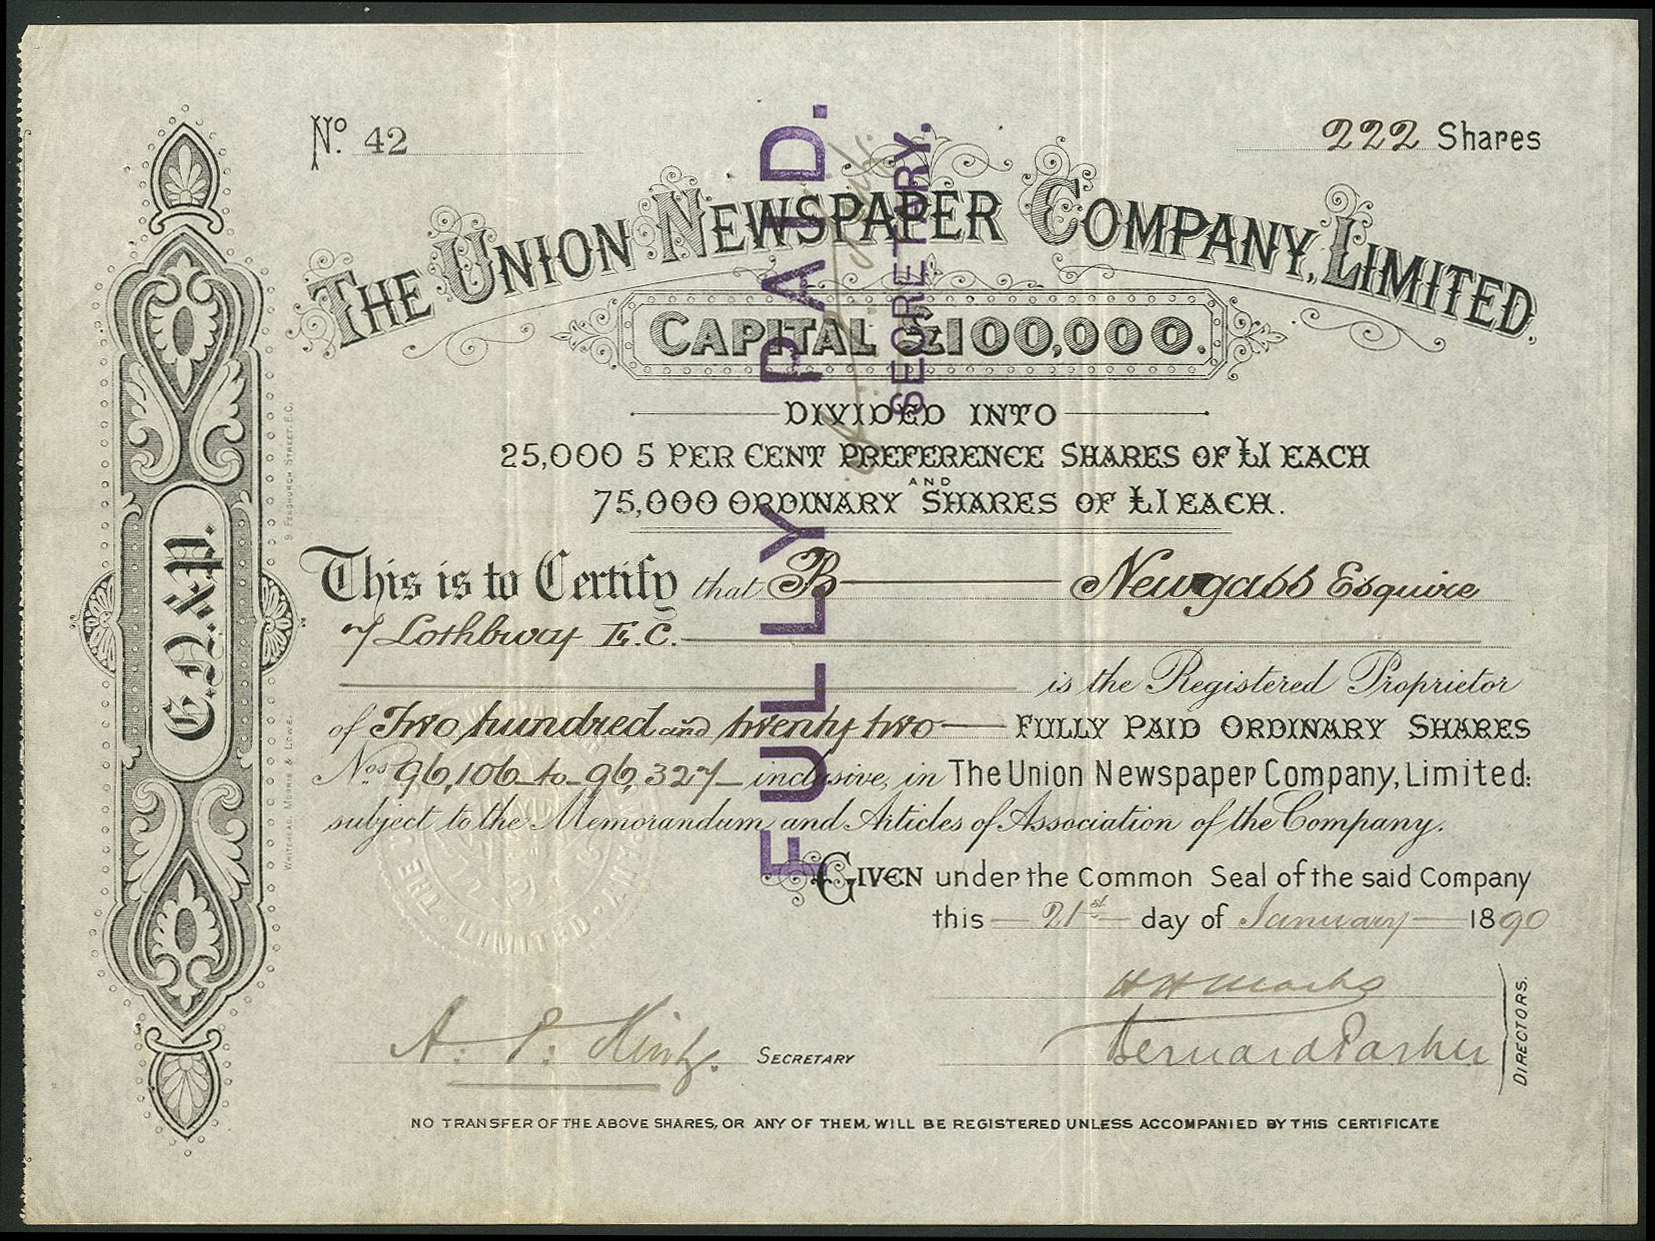 No. 42
222 Shares
THE UNION NEWSPAPER COMPANY, LIMITED.
CAPITAL £100,000.
DIVIDED INTO
25,000 5 PER CENT PREFERENCE SHARES OF £1 EACH
AND
75,000 ORDINARY SHARES OF £1 EACH.
This is to Certify that B Newgass Esquire
7 Lothbury E.C.
is the Registered Proprietor
of Two hundred and twenty two FULLY PAID ORDINARY SHARES
Nos 96,106 to 96,327 inclusive, in The Union Newspaper Company, Limited:
subject to the Memorandum and Articles of Association of the Company.
GIVEN under the Common Seal of the said Company
this 21st day of January 1890
H H Marks
Bernard Parker
DIRECTORS.
A. P. SECRETARY
NO TRANSFER OF THE ABOVE SHARES, OR ANY OF THEM, WILL BE REGISTERED UNLESS ACCOMPANIED BY THIS CERTIFICATE
FULLY PAID.
SECRETARY.
WHITEHEAD, MORRIS & LOWE, 9 FENCHURCH STREET, E.C.
THE LIMITED